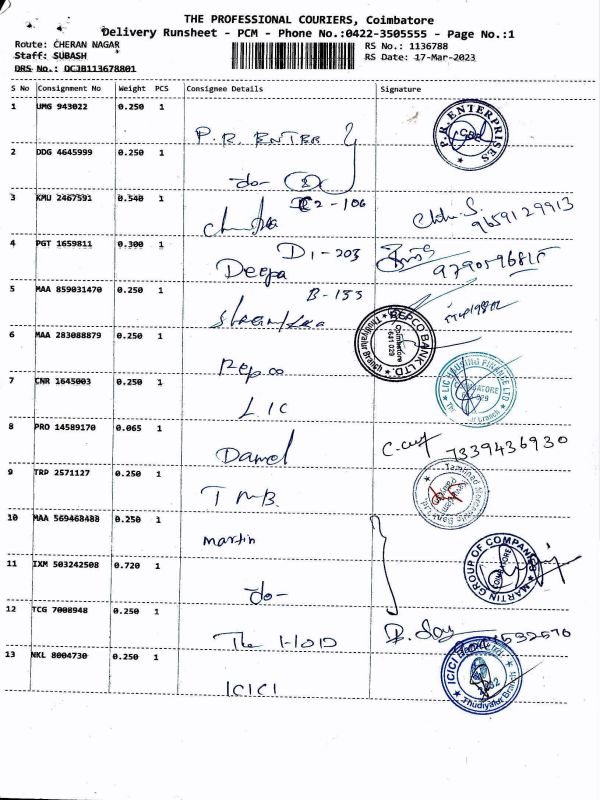 THE PROFESSIONAL COURIERS, Coimbatore
Delivery Runsheet - PCM - Phone No.:0422-3505555 - Page No.:1
Route: CHERAN NAGAR
RS No.: 1136788
Staff: SUBASH
RS Date: 17-Mar-2023
DRS No.: DCJB113678801
S No Consignment No Weight PCS Consignee Details Signature
1 UMG 943022 0.250 1 P.R. ENTER
P.R. ENTERPRISES
2 DDG 4645999 0.250 1 do- 2
3 KMU 2467591 0.540 1 C2-106
9659129913
4 PGT 1659811 0.300 1 Deepa D1-203
5 MAA 859031470 0.250 1
6 MAA 283088879 0.250 1 Repco
REPCO BANK LTD. Coimbatore 641 029 Thudiyalur Branch
7 CNR 1645003 0.250 1 LIC
LIC HOUSING FINANCE LTD
8 PRO 14589170 0.065 1 7339436930
9 TRP 2571127 0.250 1 TMB
Tamilnad Mercantile Bank Ltd
10 MAA 569468488 0.250 1 martin
11 IXM 503242508 0.720 1 do-
MARTIN GROUP OF COMPANIES COIMBATORE
12 TCG 7008948 0.250 1 The HOD
13 NKL 8004730 0.250 1 ICICI
ICICI Thudiyalur Branch